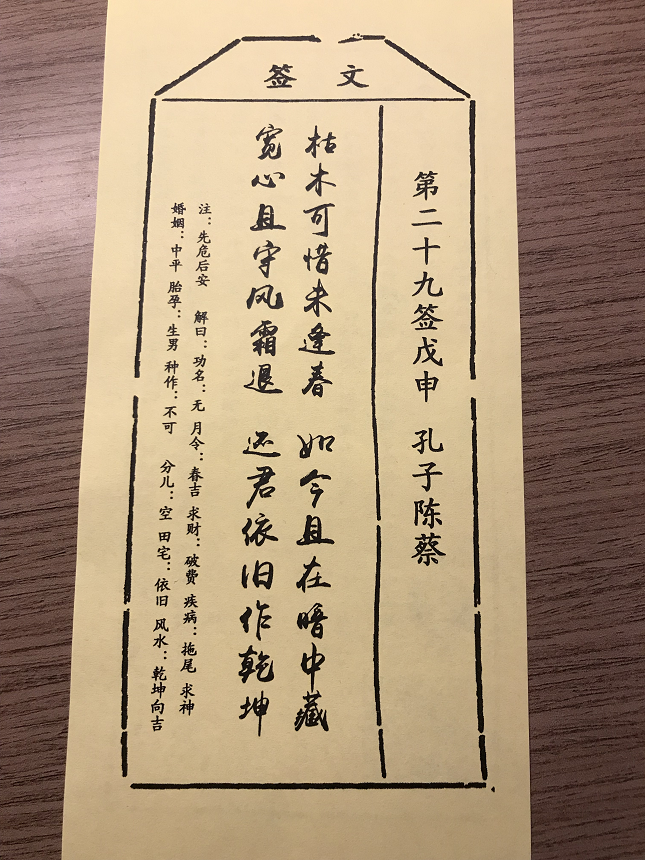 签文
第二十九签戊申 孔子陈蔡
枯木可惜未逢春 如今且在暗中藏
宽心且守风霜退 还君依旧作乾坤
注：先危后安 解曰：功名：无 月令：春吉 求财：破费 疾病：拖尾 求神
婚姻：中平 胎孕：生男 种作：不可 分儿：空 田宅：依旧 风水：乾坤向吉